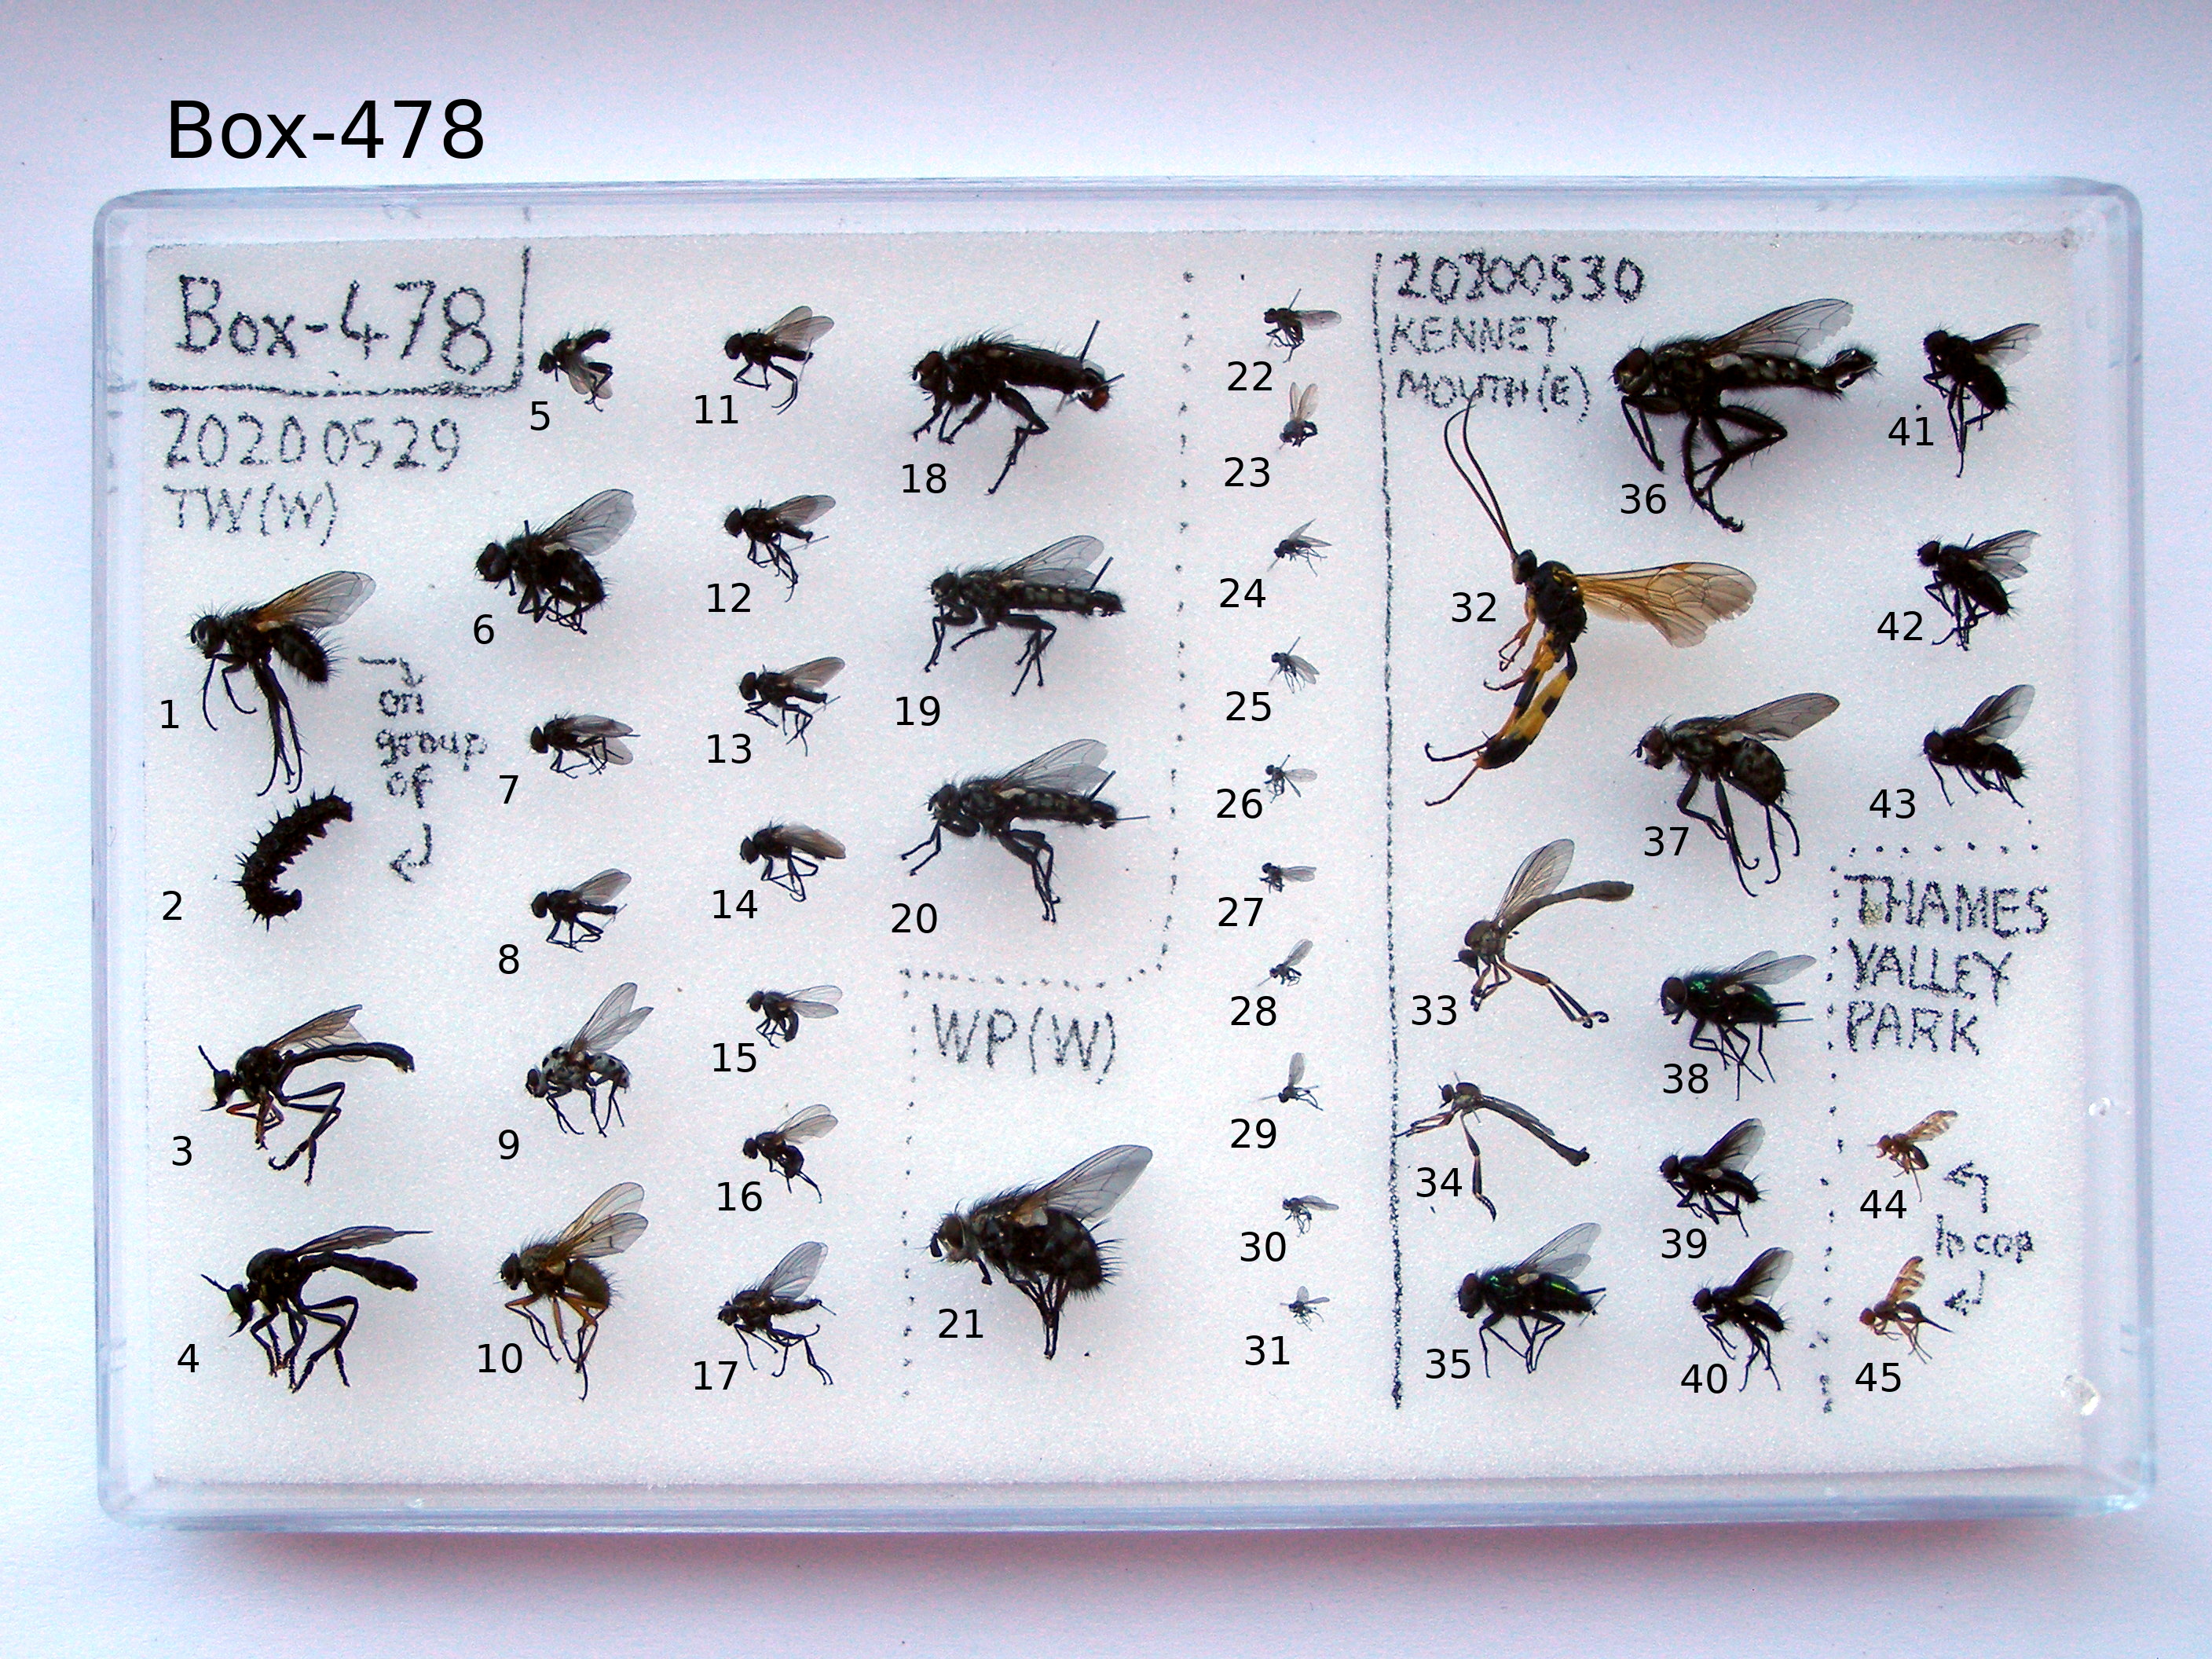 Box-478
Box-478
20200529
TW(W)
1
on
group
of
2
3
4
5
6
7
8
9
10
11
12
13
14
15
16
17
18
19
20
WP(W)
21
22
23
24
25
26
27
28
29
30
31
20200530
KENNET
MOUTH(E)
32
33
34
35
36
37
38
39
40
41
42
43
THAMES
VALLEY
PARK
44
In cop
45